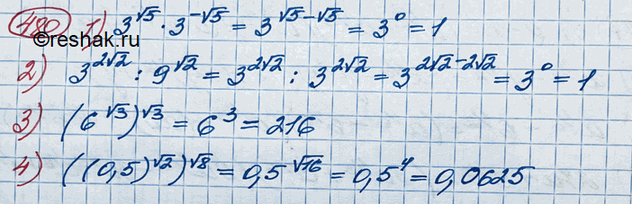 480 1) 3^√5 · 3^-√5 = 3^√5-√5 = 3^0 = 1
©reshak.ru
2) 3^2√2 : 9^√2 = 3^2√2 : 3^2√2 = 3^2√2-2√2 = 3^0 = 1
3) (6^√3)^√3 = 6^3 = 216
4) ((0,5)^√2)^√8 = 0,5^√16 = 0,5^4 = 0,0625